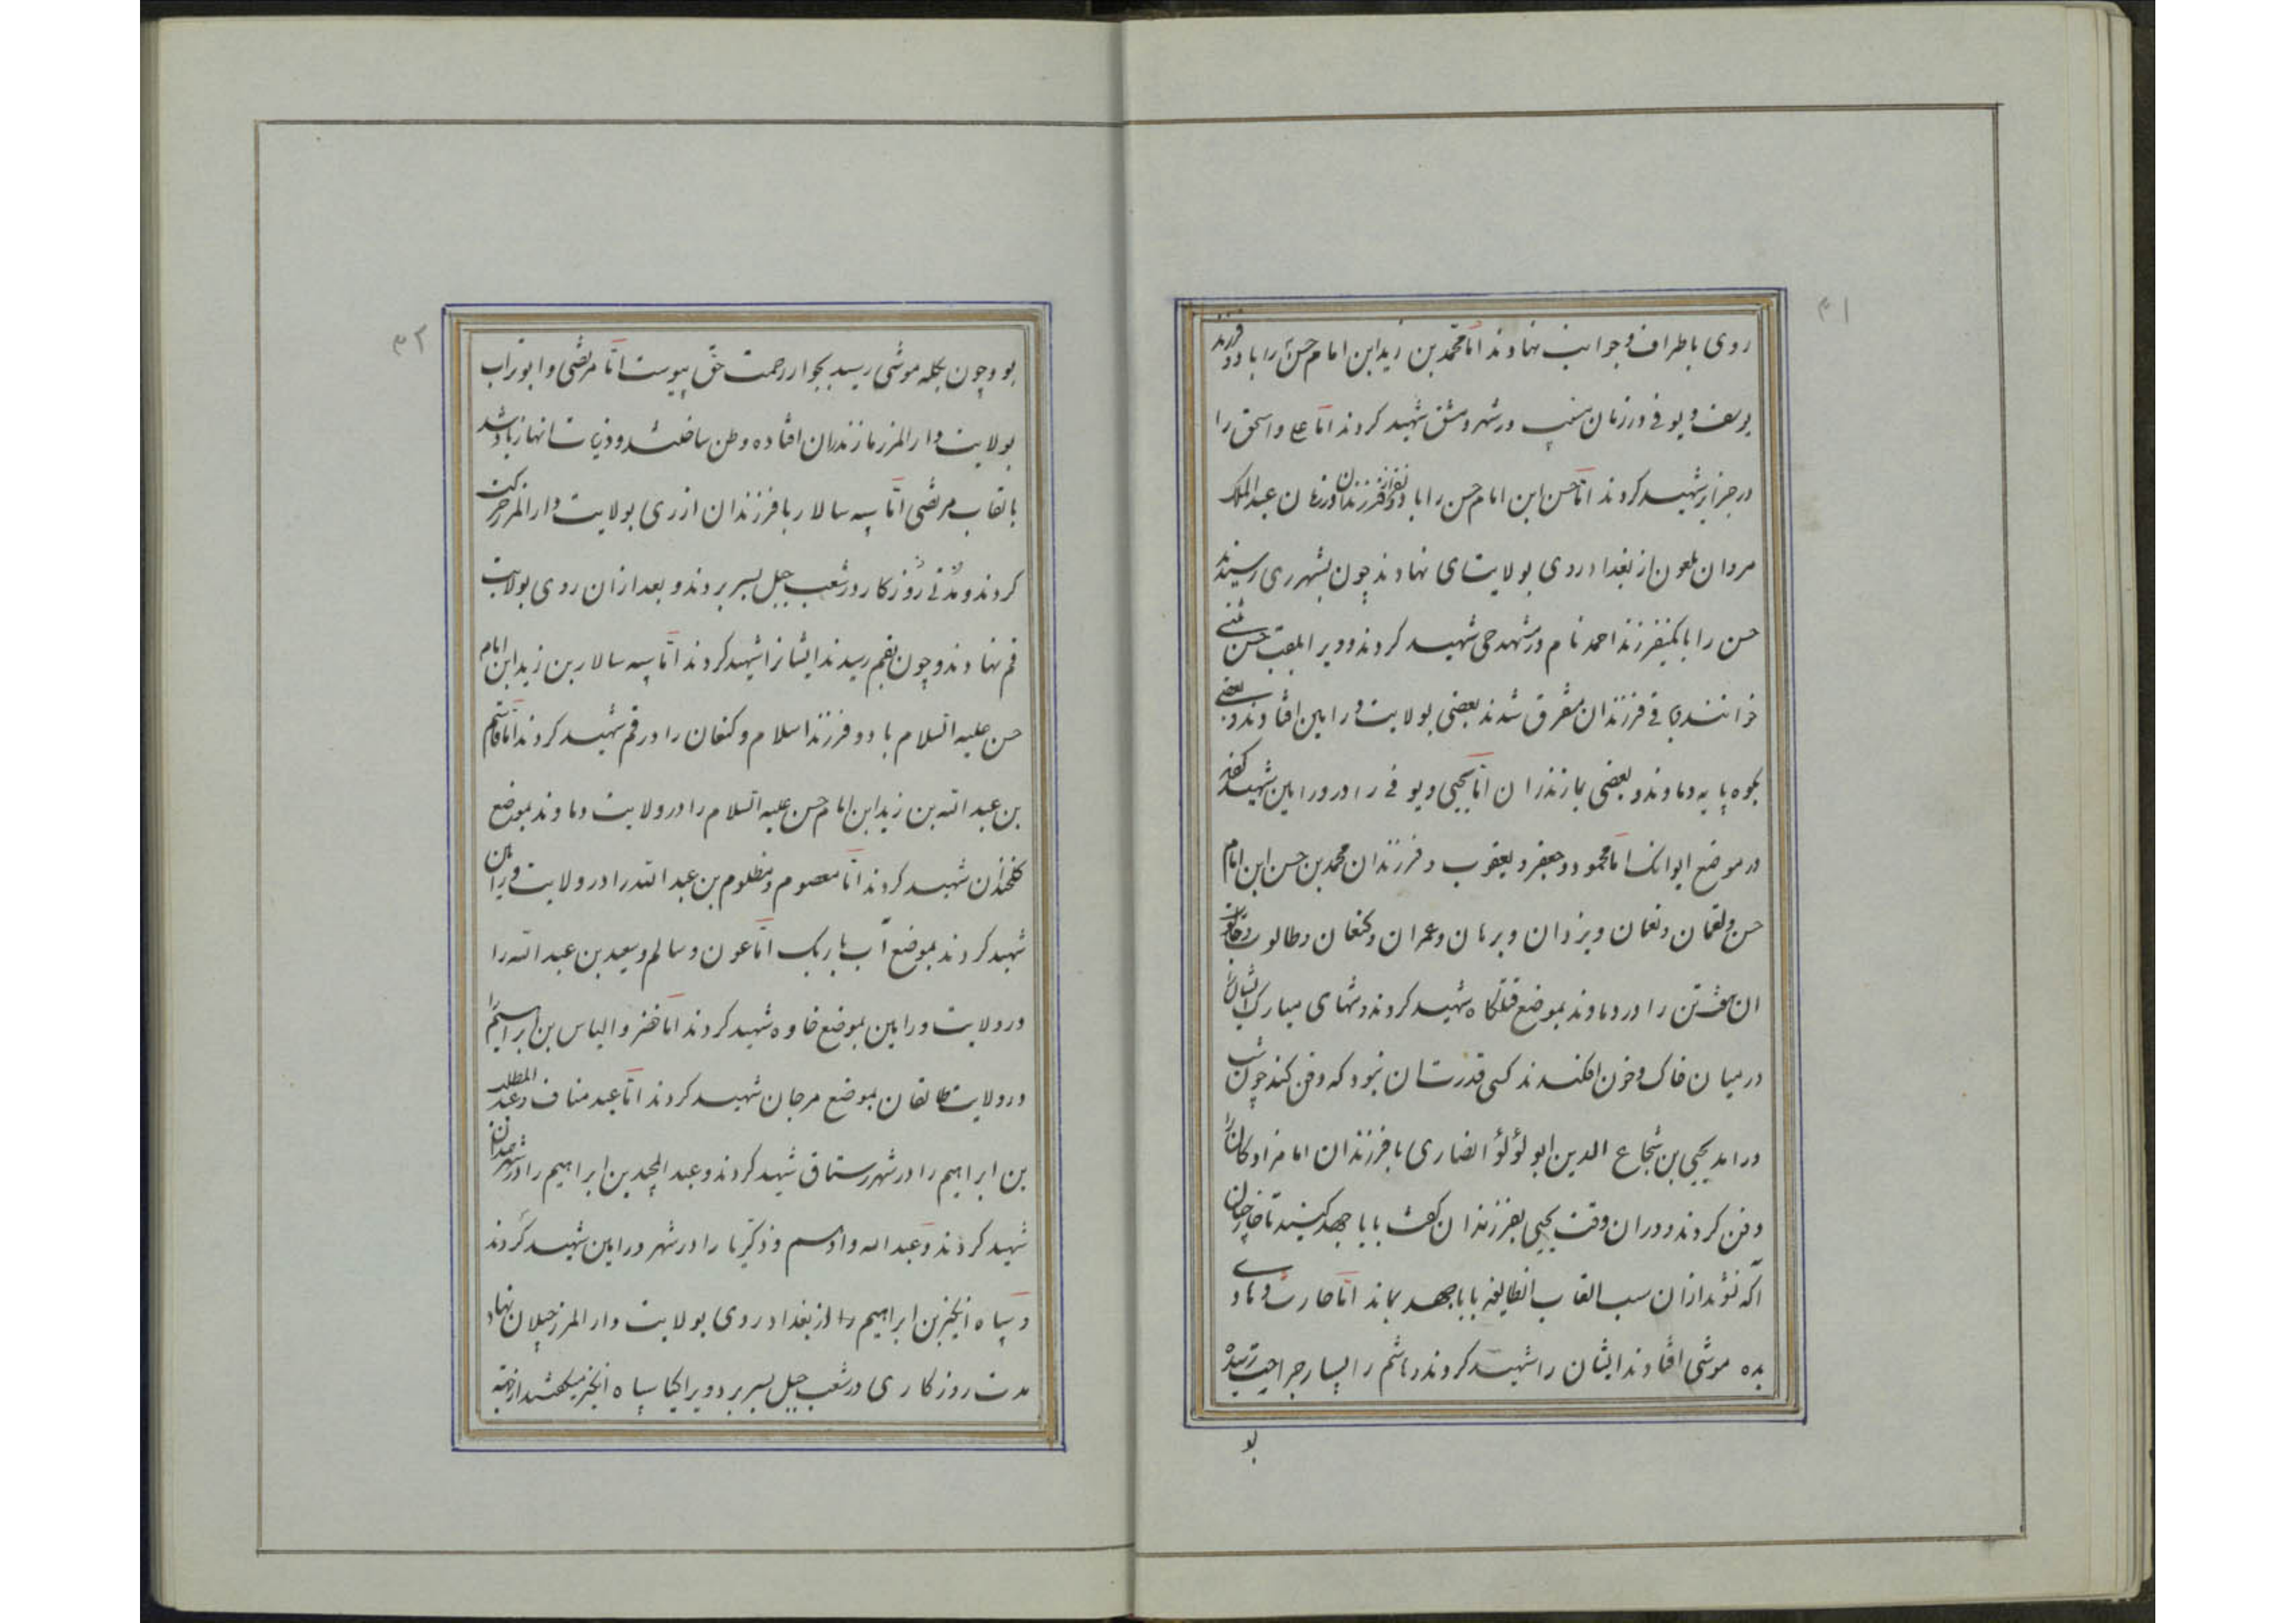 ۳۱
روی باطراف و جوانب نهادند اما محمد بن زید ابن امام حسن را با دو فرزند
یوسف و یوفی در زمان منیب در شهر دمشق شهید کردند اما علی و اسحق را
در جزایر شهید کردند اما حسن ابن امام حسن را با دو نفر از فرزندان در زمان عبدالملک
مروان ملعون از بغداد روی بولایت ری نهادند چون بشهر ری رسیدند
حسن را با یکنفر فرزند احمد نام در مشهد حی شهید کردند و ویرا ملقب حسن مثنی
خوانند باقی فرزندان متفرق شدند بعضی بولایت ورامین افتادند و بعضی
بکوه پایه دماوند و بعضی بمازندران اما یحیی و یوفی را در ورامین شهید کردند
در موضع ایوانک اما محمود و جعفر و یعقوب و فرزندان محمد بن حسن ابن امام
حسن و لقمان و نعمان و یزدان و برمان و عمران و کنعان و طالوت و جالوت
ان هفت تن را در دماوند بموضع قتلگاه شهید کردند و تنهای مبارک ایشان را
در میان خاک و خون افکندند کسی قدرت ان نبود که دفن کند چون شب
درامد یحیی بن شجاع الدین ابو لؤلؤ انصاری با فرزندان امامزادگان را
دفن کردند و دران وقت یحیی بفرزندان گفت بابا جهد کنید تا خارجیان
آگه نشوند ازان سبب القاب انطایفه بابا جهد بماند اما حارث و هادی
بده موشی افتادند ایشان را شهید کردند و هاشم را بسیار جراحت رسیده
بو
۳۲
بو و چون بکله موشی رسید بجوار رحمت حق پیوست اما مرتضی و ابوتراب
بولایت دارالمرز مازندران افتاده وطن ساختند و ذریات انها زیاد شد
بالقاب مرتضی اما سپه سالار با فرزندان از ری بولایت دارالمرز حرکت
کردند و مدتی روزگار در شعب جبل بسر بردند و بعد ازان روی بولایت
قم نهادند و چون بقم رسیدند ایشانرا شهید کردند اما سپه سالار بن زید ابن امام
حسن علیه السلام با دو فرزند اسلام و کنعان را در قم شهید کردند اما قاسم
بن عبد الله بن زید ابن امام حسن علیه السلام را در ولایت دماوند بموضع
شهید کردند اما معصوم و مظلوم بن عبد الله را در ولایت ورامین
شهید کردند بموضع آب باریک اما عون و سالم و سعید بن عبد الله را
در ولایت ورامین بموضع خاوه شهید کردند اما خضر و الیاس بن ابراهیم را
در ولایت طالقان بموضع مرجان شهید کردند اما عبد مناف و عبد المطلب
بن ابراهیم را در شهر رستماق شهید کردند و عبد المجید بن ابراهیم را در شهر همدان
شهید کردند و عبد الله و ادهم و ذکریا را در شهر ورامین شهید کردند
و سپاه انگیز بن ابراهیم را از بغداد روی بولایت دارالمرز جیلان نهاد
مدت روزگاری در شعب جبل بسر برد و ویرا کیا سپاه انگیز میگفتند